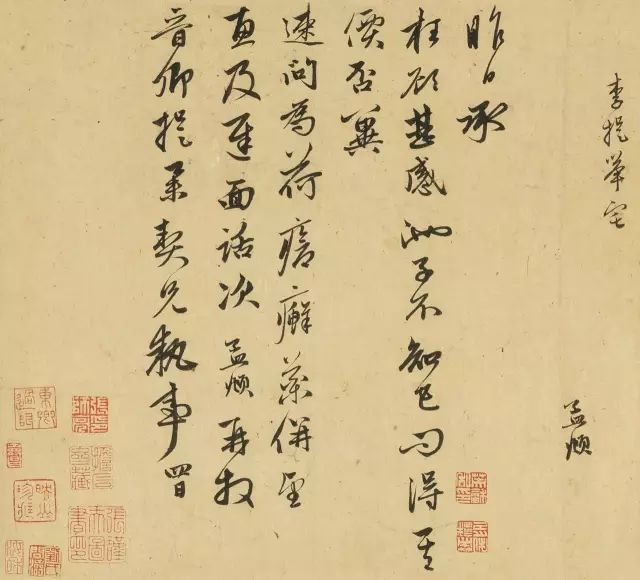 李提舉宅
孟頫
昨日承
枉顧甚感泖子不知已問得其
價否冀
速問為荷瘡癬藥併望
惠及遲面話次孟頫再拜
音卿提舉契兄執事四日